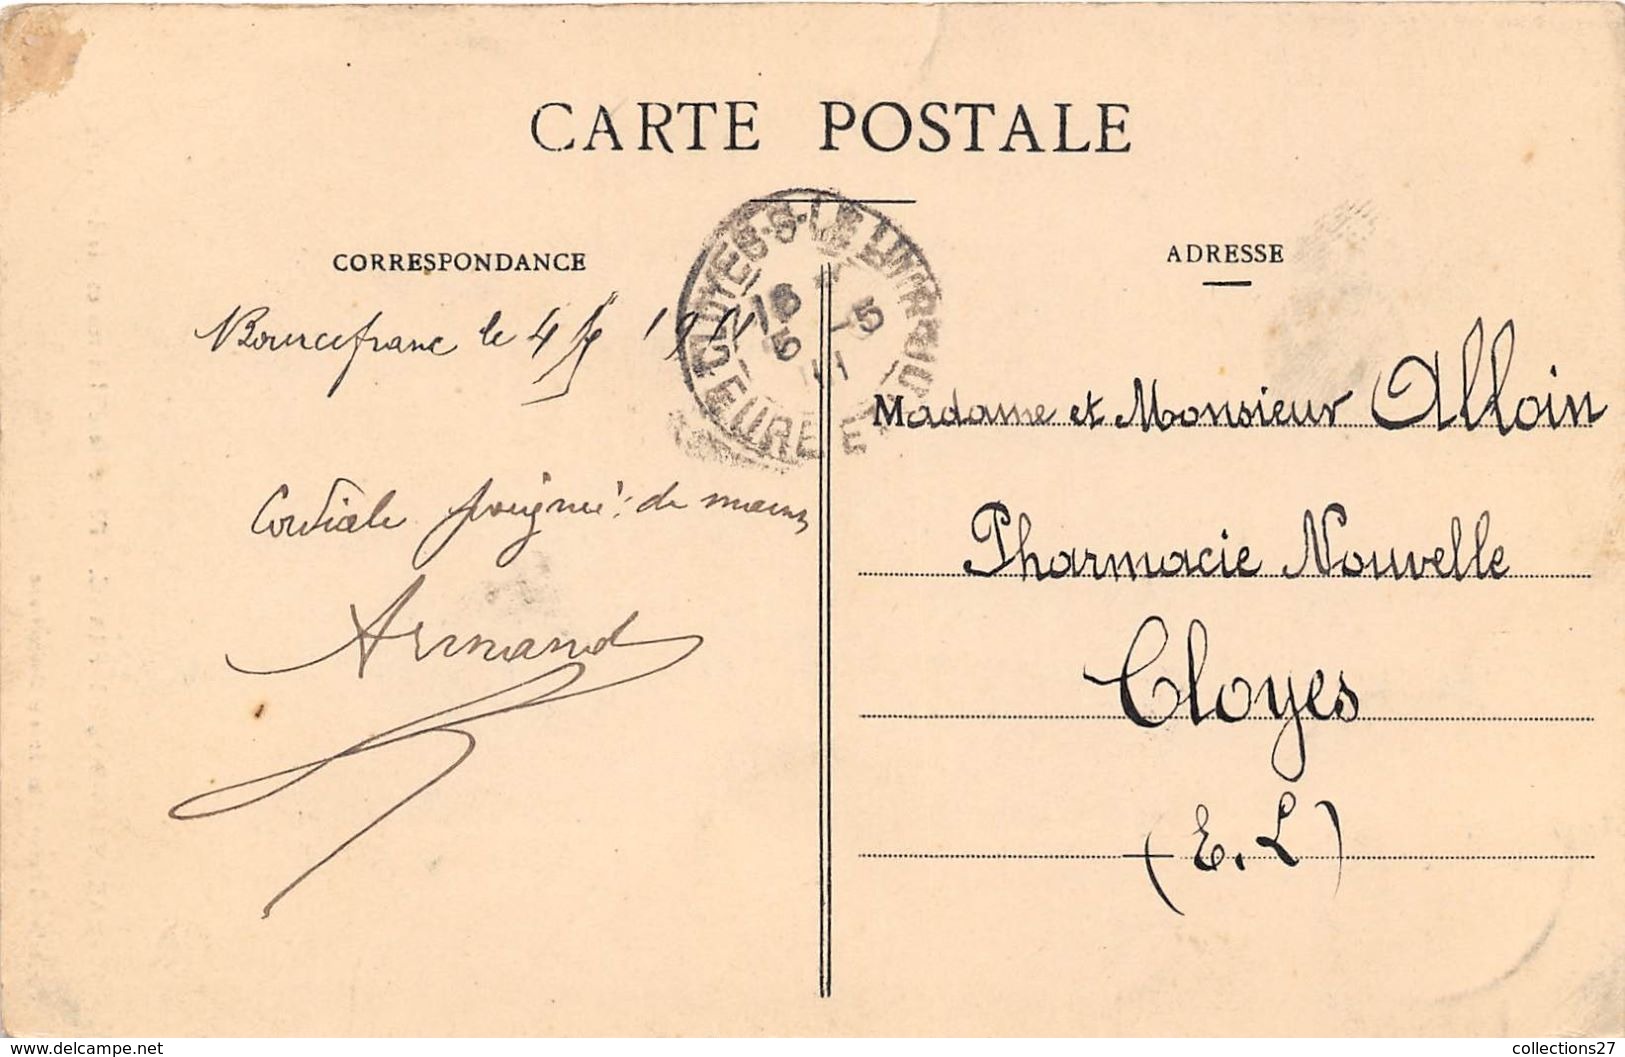 CARTE POSTALE
CORRESPONDANCE
Bourcefranc le 4/5 1911
Cordiale poignée de mains
Armand
CLOYES-S-LE LOIR
16
5 -5
11
EURE ET
ADRESSE
Madame et Monsieur Alloin
Pharmacie Nouvelle
Cloyes
(E. L)
collections27